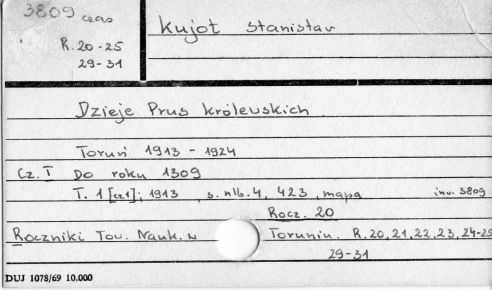 3809 czas
R. 20-25
29-31
Kujot Stanisław
Dzieje Prus Królewskich
Toruń 1913 - 1924
Cz. I Do roku 1309
T. 1 [cz1]; 1913, s. nlb. 4, 423, mapa inv. 3809
Rocz. 20
Roczniki Tow. Nauk. w Toruniu. R. 20, 21, 22, 23, 24-25
29-31
DUJ 1078/69 10.000